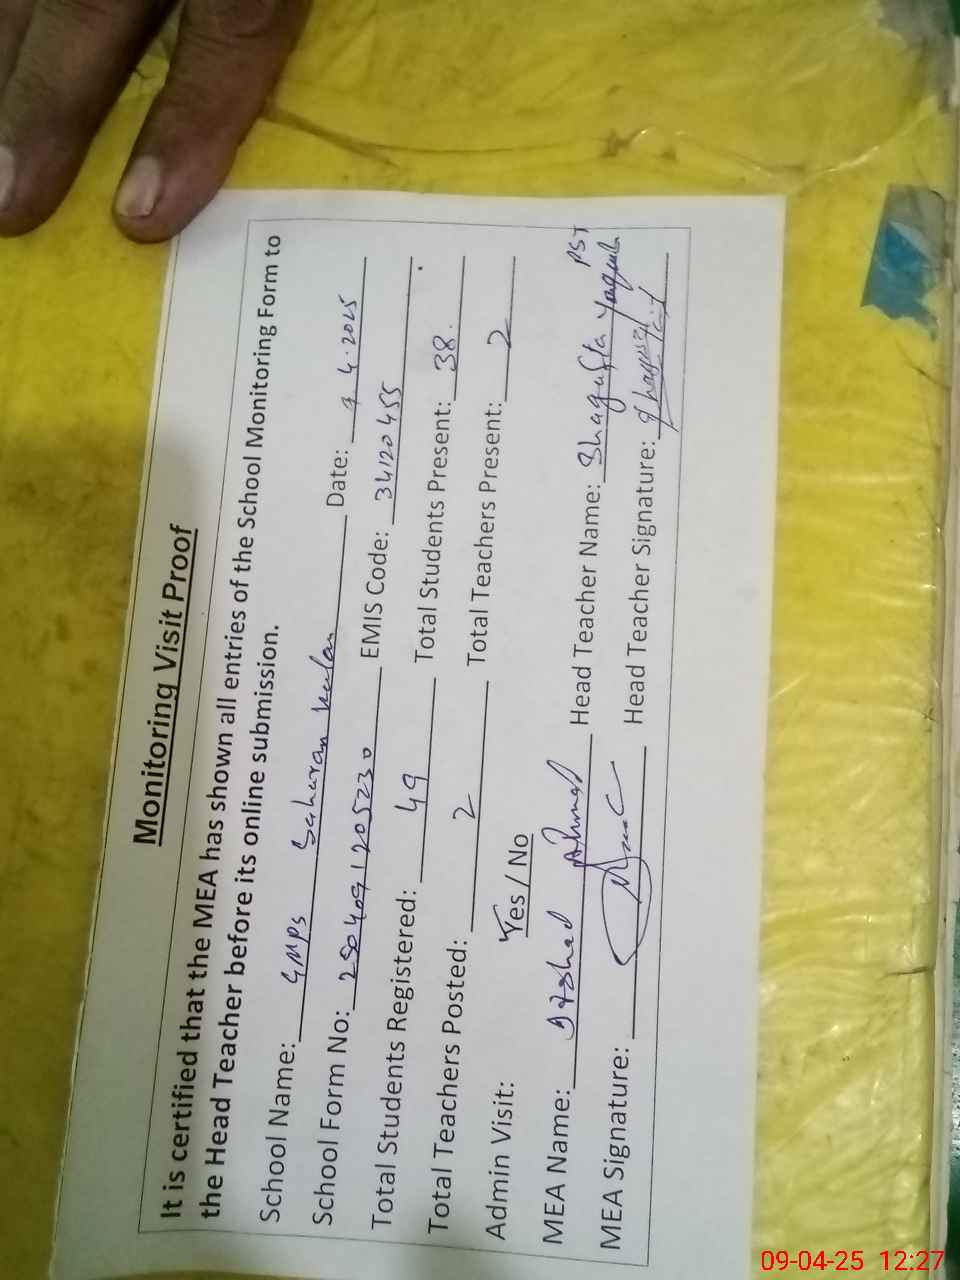 Monitoring Visit Proof
It is certified that the MEA has shown all entries of the School Monitoring Form to
the Head Teacher before its online submission.
School Name: GMPS Saharan kalan Date: 9 4.2025
School Form No: 2504091205230 EMIS Code: 34120455
Total Students Registered: 49 Total Students Present: 38.
Total Teachers Posted: 2 Total Teachers Present: 2
Admin Visit: Yes / No
MEA Name: Arshad Ahmad Head Teacher Name: Shagufta Yaqub PST
MEA Signature: Head Teacher Signature:
09-04-25 12:27